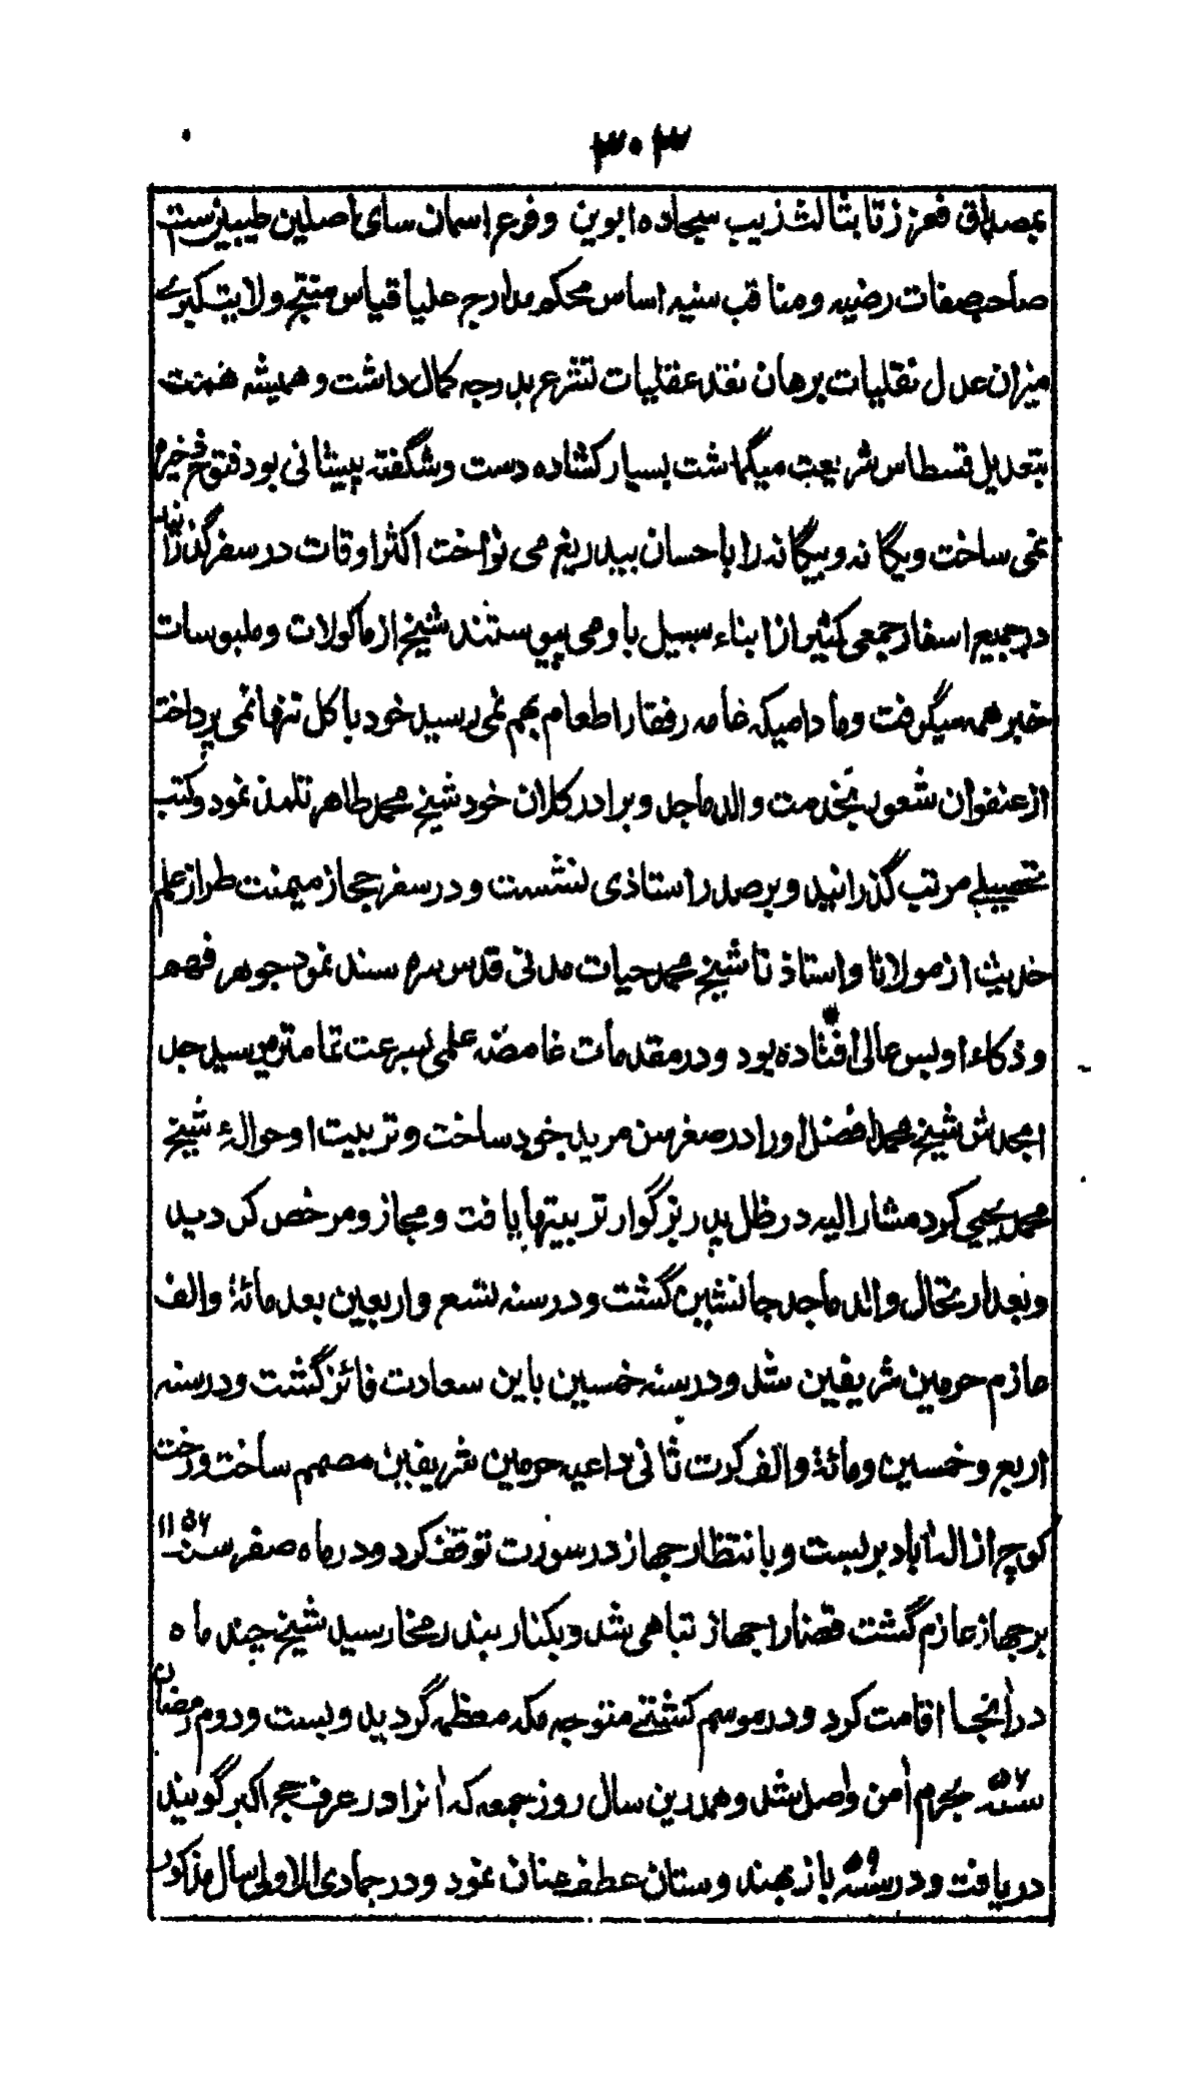 ۳۰۳
بمصداق فعززنا بثالث زیب سجاده ابوین وفرع اسمان سای اصلین طیبین ست
صاحب صفات رضیه و مناقب سنیه اساس محکم مدارج علیا قیاس منتج ولایت کبرے
میزان عدل نقلیات برهان نقد عقلیات تشرع بدرجه کمال داشت و همیشه همت
بتعدیل قسطاس شریعت میگماشت بسیار کشاده دست وشگفته پیشانی بود فتوح ذخیره
نمی ساخت ویگانه و بیگانه را باحسان بیدریغ می نواخت اکثر اوقات در سفر گذرانید
در جمیع اسفار جمعی کثیر از ابناء سبیل با و می پیوستند شیخ از ماکولات و ملبوسات
خبر همه میگرفت وما دامیکه عامه رفقا را طعام بهم نمی رسید خود باکل تنها نمی پرداخت
از عنفوان شعور بخدمت والد ماجد و برادر کلان خود شیخ محمد طاهر تلمذ نمود و کتب
تحصیلے مرتب گذرانید و بر صدر استاذی نشست و در سفر حجاز میمنت طراز علم
حدیث از مولانا و استاذ نا شیخ محمد حیات مدنی قدس سره سند نمود جوهر فهم
و ذکاء او بس عالی افتاده بود و در مقدمات غامضه علمی بسرعت تمامتر میرسید جد
امجدش شیخ محمد افضل او را در صغر سن مرید خود ساخت و تربیت او حوالۀ شیخ
محمد یحیی کرد مشار الیه در ظل پدر بزرگوار تربیتها یافت و مجاز و مرخص گردید
وبعد ارتحال والد ماجد جانشین گشت و در سنه تسع و اربعین بعد مائة والف
عازم حرمین شریفین شد و در سنه خمسین باین سعادت فائز گشت و در سنه
اربع و خمسین ومائة والف کرت ثانی داعیه حرمین شریفین مصمم ساخت و رخت
کوچ از اله آباد بر بست و بانتظار جهاز در سورت توقف کرد و در ماه صفر سنه ۱۱۵۶
بر جهاز عازم گشت قضارا جهاز تباهی شد و بکنار بندر مخا رسید شیخ چند ماه
در انجا اقامت کرد و در موسم کشتی متوجه مکه معظمه گردید و بست و دوم رمضان
سنه ۵۶ بحرم امن واصل شد و همدرین سال روز جمعه که انرا در عرف حج اکبر گویند
دریافت و در سنه ۵۹ باز بهند وستان عطف عنان نمود و در جمادی الاولی سال مذکور